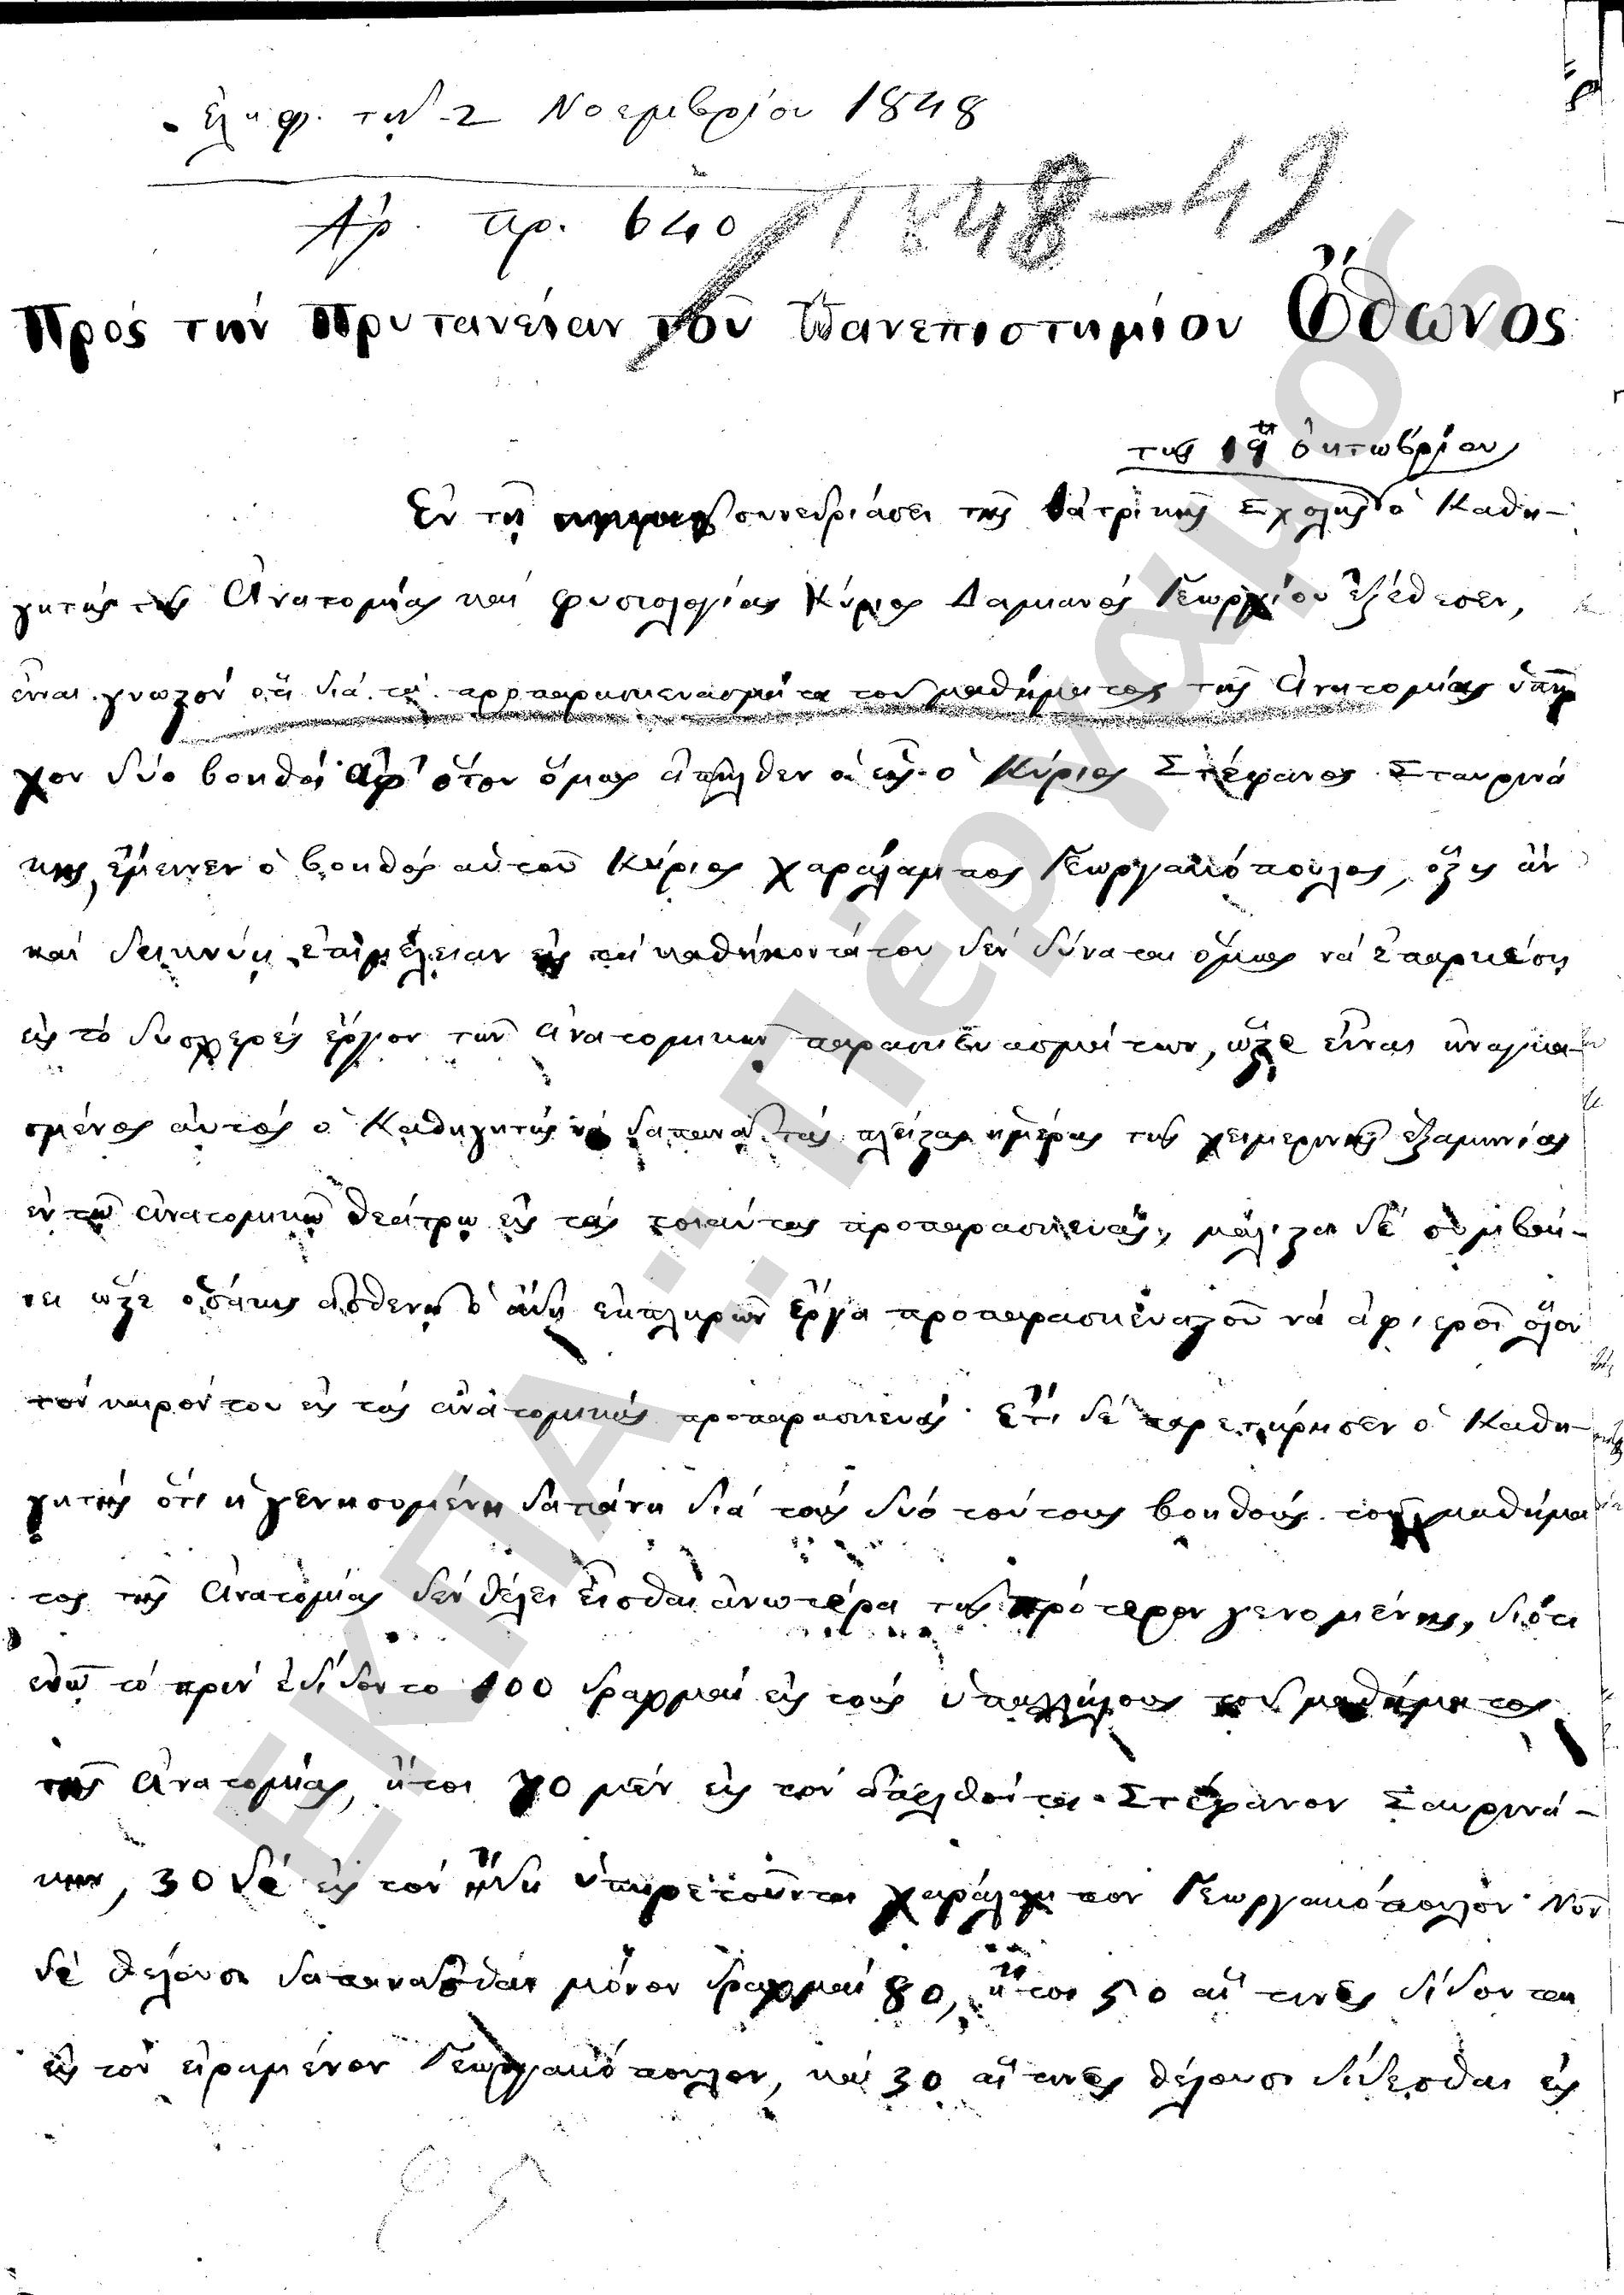 ἐλήφ. τὴν 2 Νοεμβρίου 1848
Ἀρ. πρ. 640
1848-49
Πρός τήν Πρυτανείαν τοῦ Πανεπιστημίου Ὄθωνος
τῆς 19 ὀκτωβρίου
Ἐν τῇ συνεδριάσει τῆς Ἰατρικῆς Σχολῆς ὁ Καθη-
γητής τῆς Ἀνατομίας καί φυσιολογίας Κύριος Δαμιανός Γεωργίου ἐξέθεσεν,
εἶναι γνωστόν ὅτι διά τά προπαρασκευάσματα τοῦ μαθήματος τῆς Ἀνατομίας ὑπῆρ
χον δύο βοηθοί· ἀφ' ὅτου ὅμως ἀπῆλθεν ὁ Κύριος Στέφανος Σταυρινά
κης, ἔμεινεν ὁ βοηθός αὐτοῦ Κύριος Χαράλαμπος Γεωργακόπουλος, ὅστις ἄν
καί δεικνύει ἐπιμέλειαν εἰς τά καθήκοντά του δέν δύναται ὅμως νά ἐπαρκέσῃ
εἰς τό δυσχερές ἔργον τῶν ἀνατομικῶν παρασκευασμάτων, ὥστε εἶναι ἀναγκα-
σμένος αὐτός ὁ Καθηγητής νά δαπανᾷ τάς πλείστας ἡμέρας τῆς χειμερινῆς ἑξαμηνίας
ἐν τῷ ἀνατομικῷ θεάτρῳ εἰς τάς τοιαύτας προπαρασκευάς, μάλιστα δέ συμβαί-
νει ὥστε ὁσάκις ἀσθενῇ ὁ ἤδη ἐκπληρῶν ἔργα προπαρασκευαστοῦ νά ἀφιεροῖ ὅλον
τόν καιρόν του εἰς τάς ἀνατομικάς προπαρασκευάς· Ἔτι δέ παρετήρησεν ὁ Καθη-
γητής ὅτι ἡ γενησομένη δαπάνη διά τούς δύο τούτους βοηθούς τοῦ μαθήμα
τος τῆς Ἀνατομίας δέν θέλει εἶσθαι ἀνωτέρα τῆς πρότερον γενομένης, διότι
ἐνῷ τό πρίν ἐδίδοντο 100 δραχμαί εἰς τούς ὑπαλλήλους τοῦ μαθήματος
τῆς Ἀνατομίας, ἤτοι 70 μέν εἰς τόν ἀπελθόντα Στέφανον Σταυρινά-
κην, 30 δέ εἰς τόν ἤδη ὑπηρετοῦντα Χαράλαμπον Γεωργακόπουλον· Νῦν
δέ θέλουσι δαπανᾶσθαι μόνον δραχμαί 80, ἤτοι 50 αἵτινες δίδονται
εἰς τόν εἰρημένον Γεωργακόπουλον, καί 30 αἵτινες θέλουσι δίδεσθαι εἰς
ΕΚΠΑ: Πέργαμος